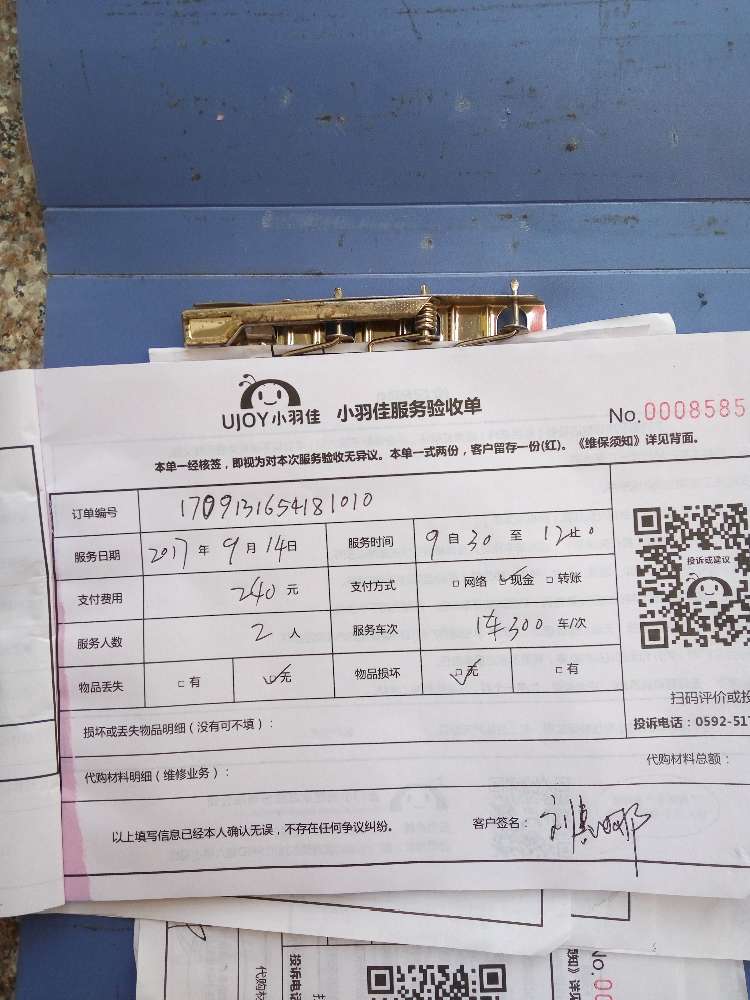 UJOY小羽佳 小羽佳服务验收单 No.0008585
本单一经核签，即视为对本次服务验收无异议。本单一式两份，客户留存一份(红)。《维保须知》详见背面。
订单编号 170913165418 1010
服务日期 2017年9月14日 服务时间 9自30至12止0
支付费用 240元 支付方式 □网络 ☑现金 □转账
投诉或建议
服务人数 2人 服务车次 1车300车/次
物品丢失 □有 ☑无 物品损坏 ☑无 □有
扫码评价或投
损坏或丢失物品明细（没有可不填）： 投诉电话：0592-517
代购材料明细（维修业务）： 代购材料总额：
以上填写信息已经本人确认无误，不存在任何争议纠纷。 客户签名：
代购材
投诉电
知》详
No.00